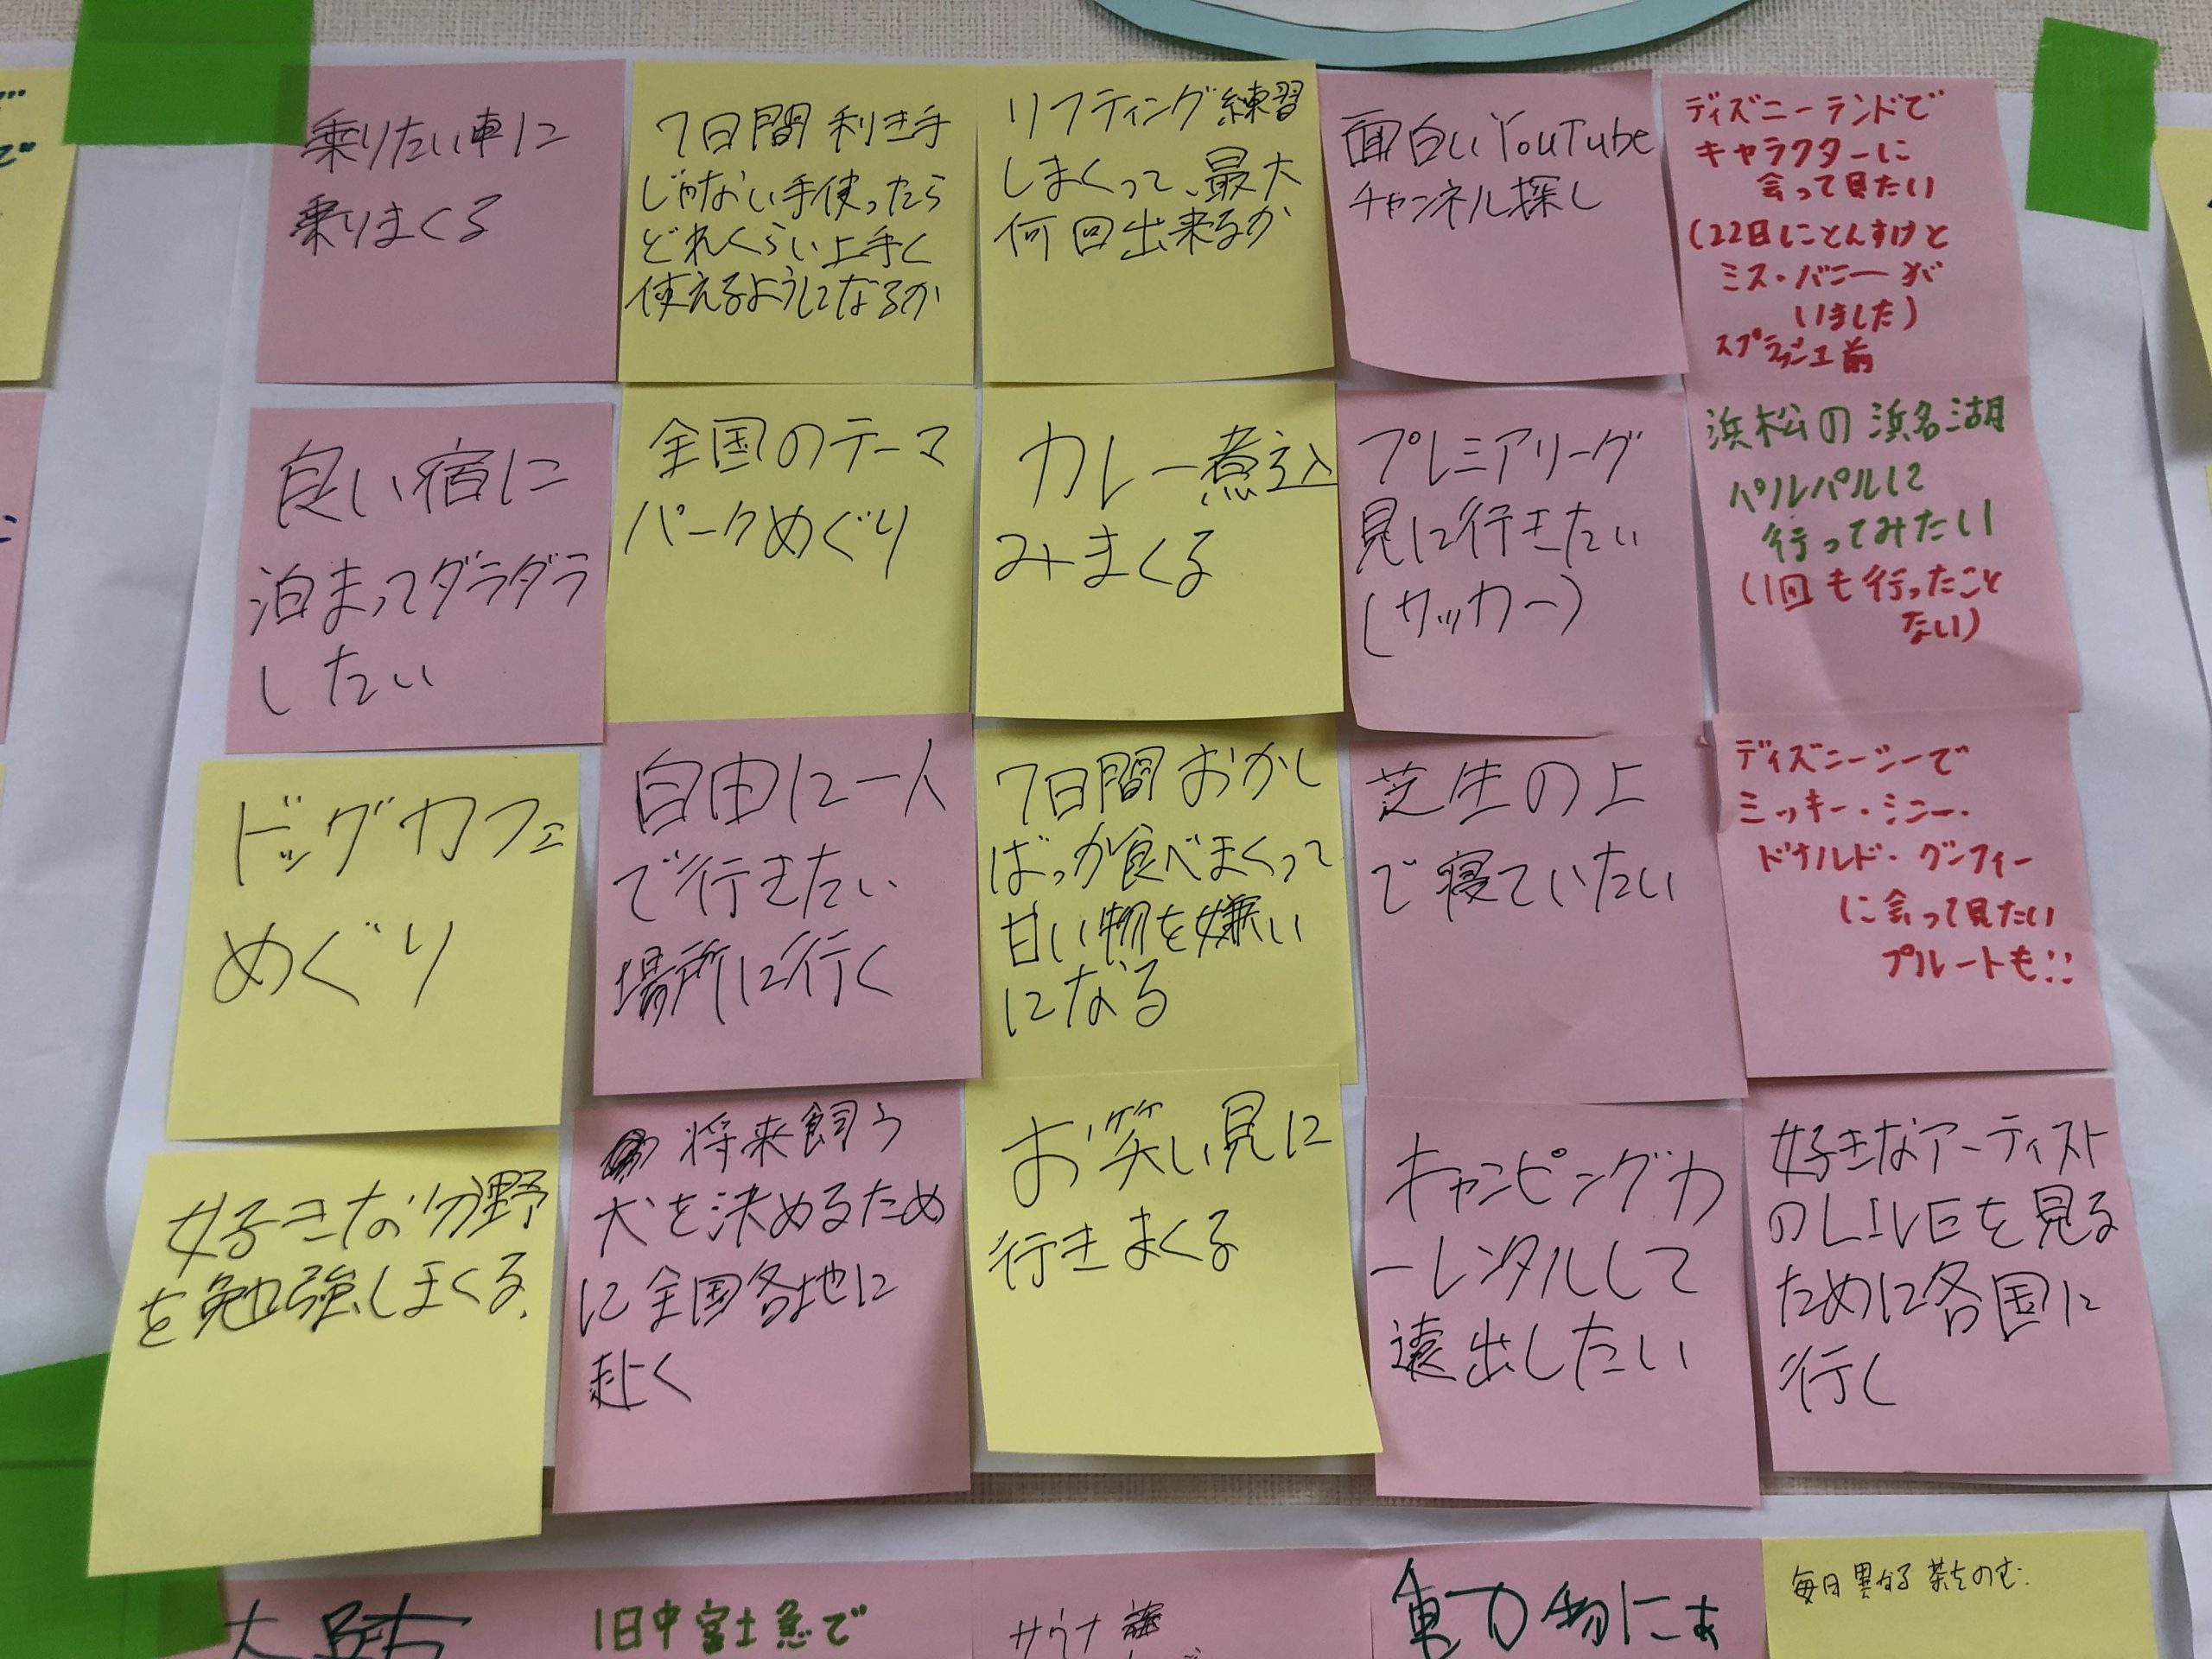 乗りたい車に
乗りまくる
7日間 利き手
じゃない手使ったら
どれくらい上手く
使えるようになるか
リフティング練習
しまくって、最大
何回出来るか
面白いYouTube
チャンネル探し
ディズニーランドで
キャラクターに
会って見たい
(22日にとんすけと
ミス・バニーが
いました)
スプラッシュ前
良い宿に
泊まってダラダラ
したい
全国のテーマ
パークめぐり
カレー煮込
みまくる
プレミアリーグ
見に行きたい
(サッカー)
浜松の浜名湖
パルパルに
行ってみたい
(1回も行ったこと
ない)
ドッグカフェ
めぐり
自由に一人
で行きたい
場所に行く
7日間おかし
ばっか食べまくって
甘い物を嫌い
になる
芝生の上
で寝ていたい
ディズニーシーで
ミッキー・ミニー・
ドナルド・グーフィー
に会って見たい
プルートも!!
好きな分野
を勉強しまくる.
将来飼う
犬を決めるため
に全国各地に
赴く
お笑い見に
行きまくる
キャンピングカ
ーレンタルして
遠出したい
好きなアーティスト
のLIVEを見る
ために各国に
行く
1日中富士急で
サウナ
動物にあ
毎日異なる茶をのむ.